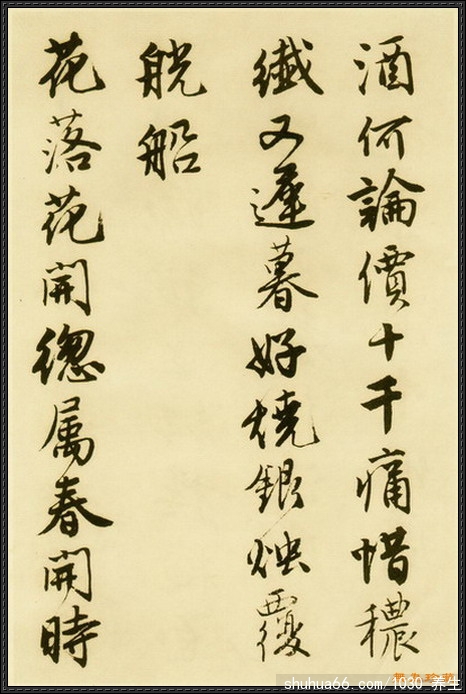 酒何論價十千痛惜穠
纖又遲暮好燒銀烛覆
觥船
花落花開緫属春開時
shuhua66.com/1030_养生